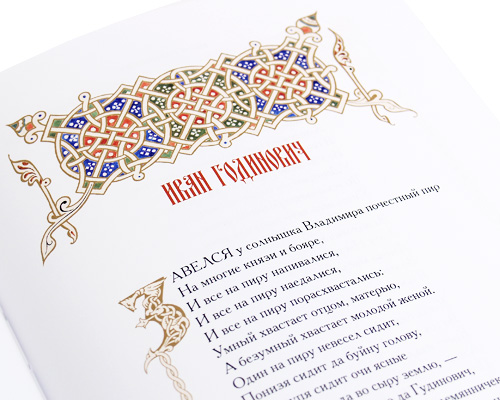 ИВАН ГОДИНОВИЧ
ЗАВЕЛСЯ у солнышка Владимира почестный пир
На многие князи и бояре,
И все на пиру напивалися,
И все на пиру наедалися,
И все на пиру порасхвастались:
Умный хвастает отцом, матерью,
А безумный хвастает молодой женой.
Один на пиру невесел сидит,
Понизя сидит да буйну голову,
сидит очи ясные
во сыру землю, —
да Гудинович,